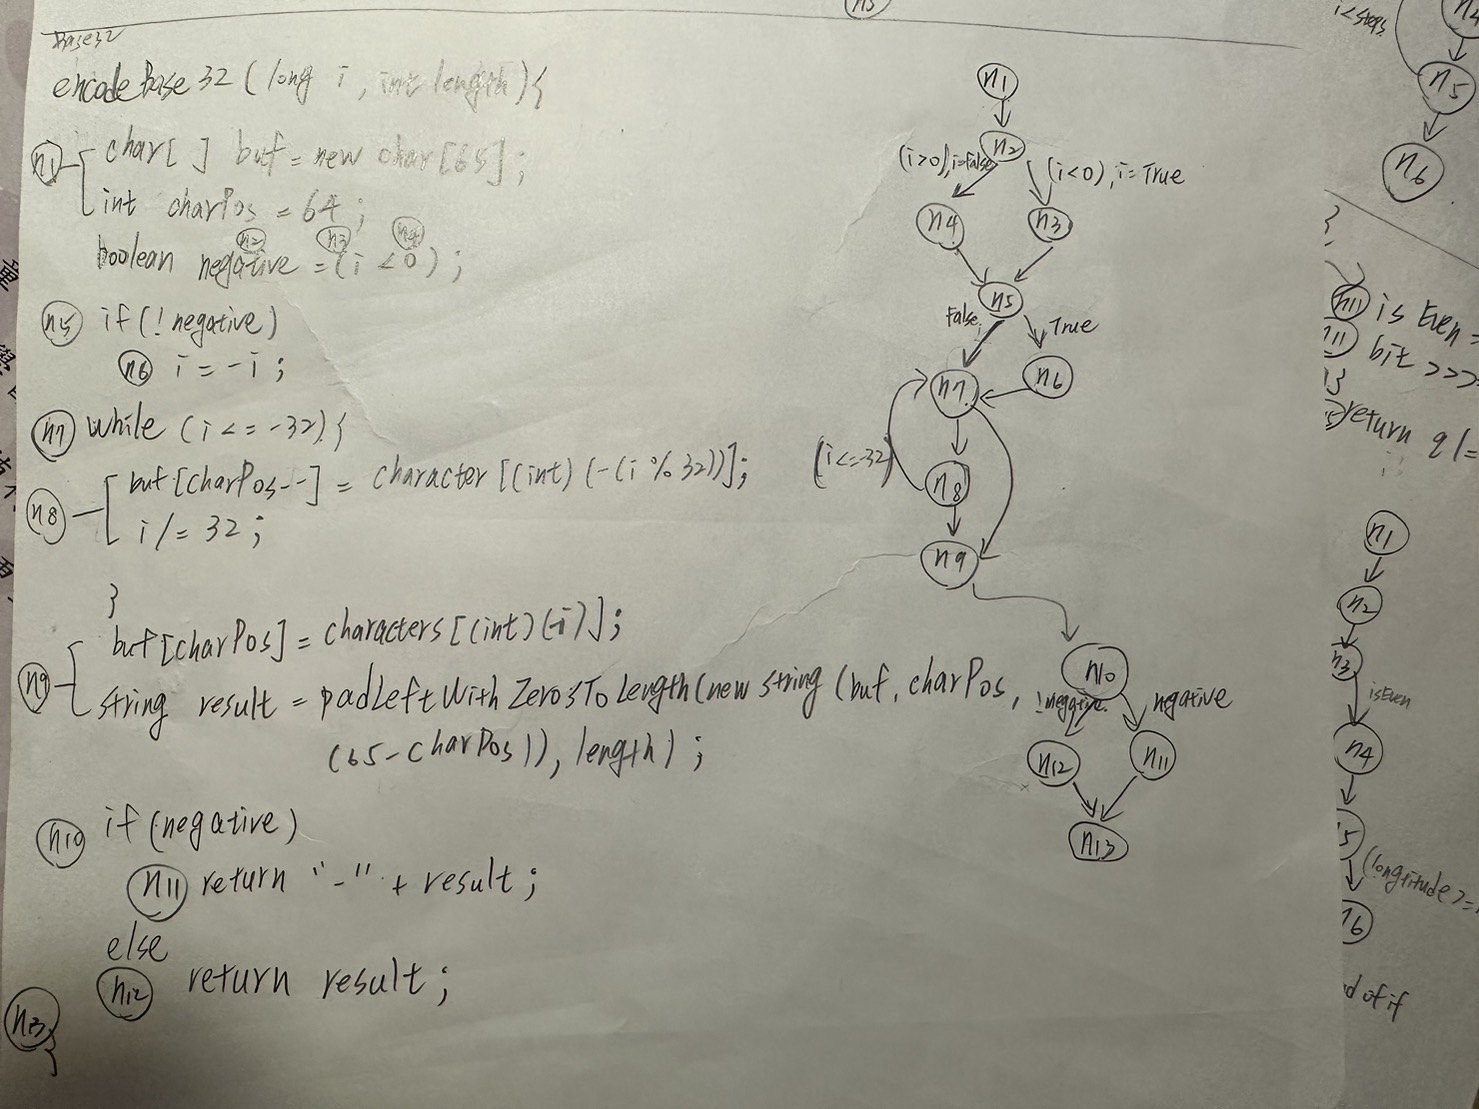 Base32
encodeBase32 (long i, int length){
n1 char[ ] buf = new char[65];
int charPos = 64;
n2 n3 n4
boolean negative = (i < 0);
n5 if(! negative)
n6 i = -i;
n7 while (i <= -32){
n8 buf[charPos--] = character [(int)(-(i % 32))];
i /= 32;
}
n9 buf[charPos] = characters[(int)(-i)];
String result = padLeftWithZerosToLength(new string (buf, charPos,
(65-charPos)), length);
n10 if (negative)
n11 return "-" + result;
else
n12 return result;
n13
}
n1
n2
(i>0), i=False
(i<0), i=True
n4
n3
n5
False
True
n7
n6
(i<=-32)
n8
n9
n10
!negative
negative
n12
n11
n13
n5
i<steps
n4
n5
n6
}
n11 is Even =
n11 bit >>>
}
return q1=
n1
n2
n3
isEven
n4
n5
(longtitude>=
n6
d of if